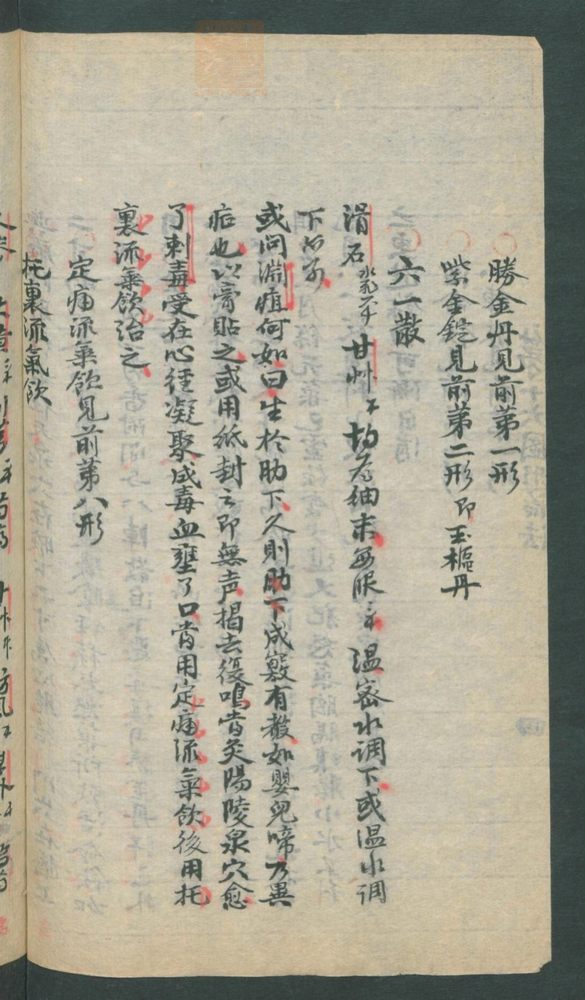 勝金丹見前第一形
紫金錠見前第二形即玉樞丹
六一散
滑石水飛六𠀋 甘艸 切為細末每服三𠀋 温蜜水调下或温水调
下亦可
或问淵疽何如曰生於肋下久則肋下成竅有声如嬰兒啼乃異
症也以膏貼之或用紙封之即無声揭去復鳴當灸陽陵泉穴愈
了刺毒受在心經凝聚成毒血壅了口當用定痛流氣飲後用托
裏流氣飲治之
定痛流氣飲見前第八形
托裏流氣飲